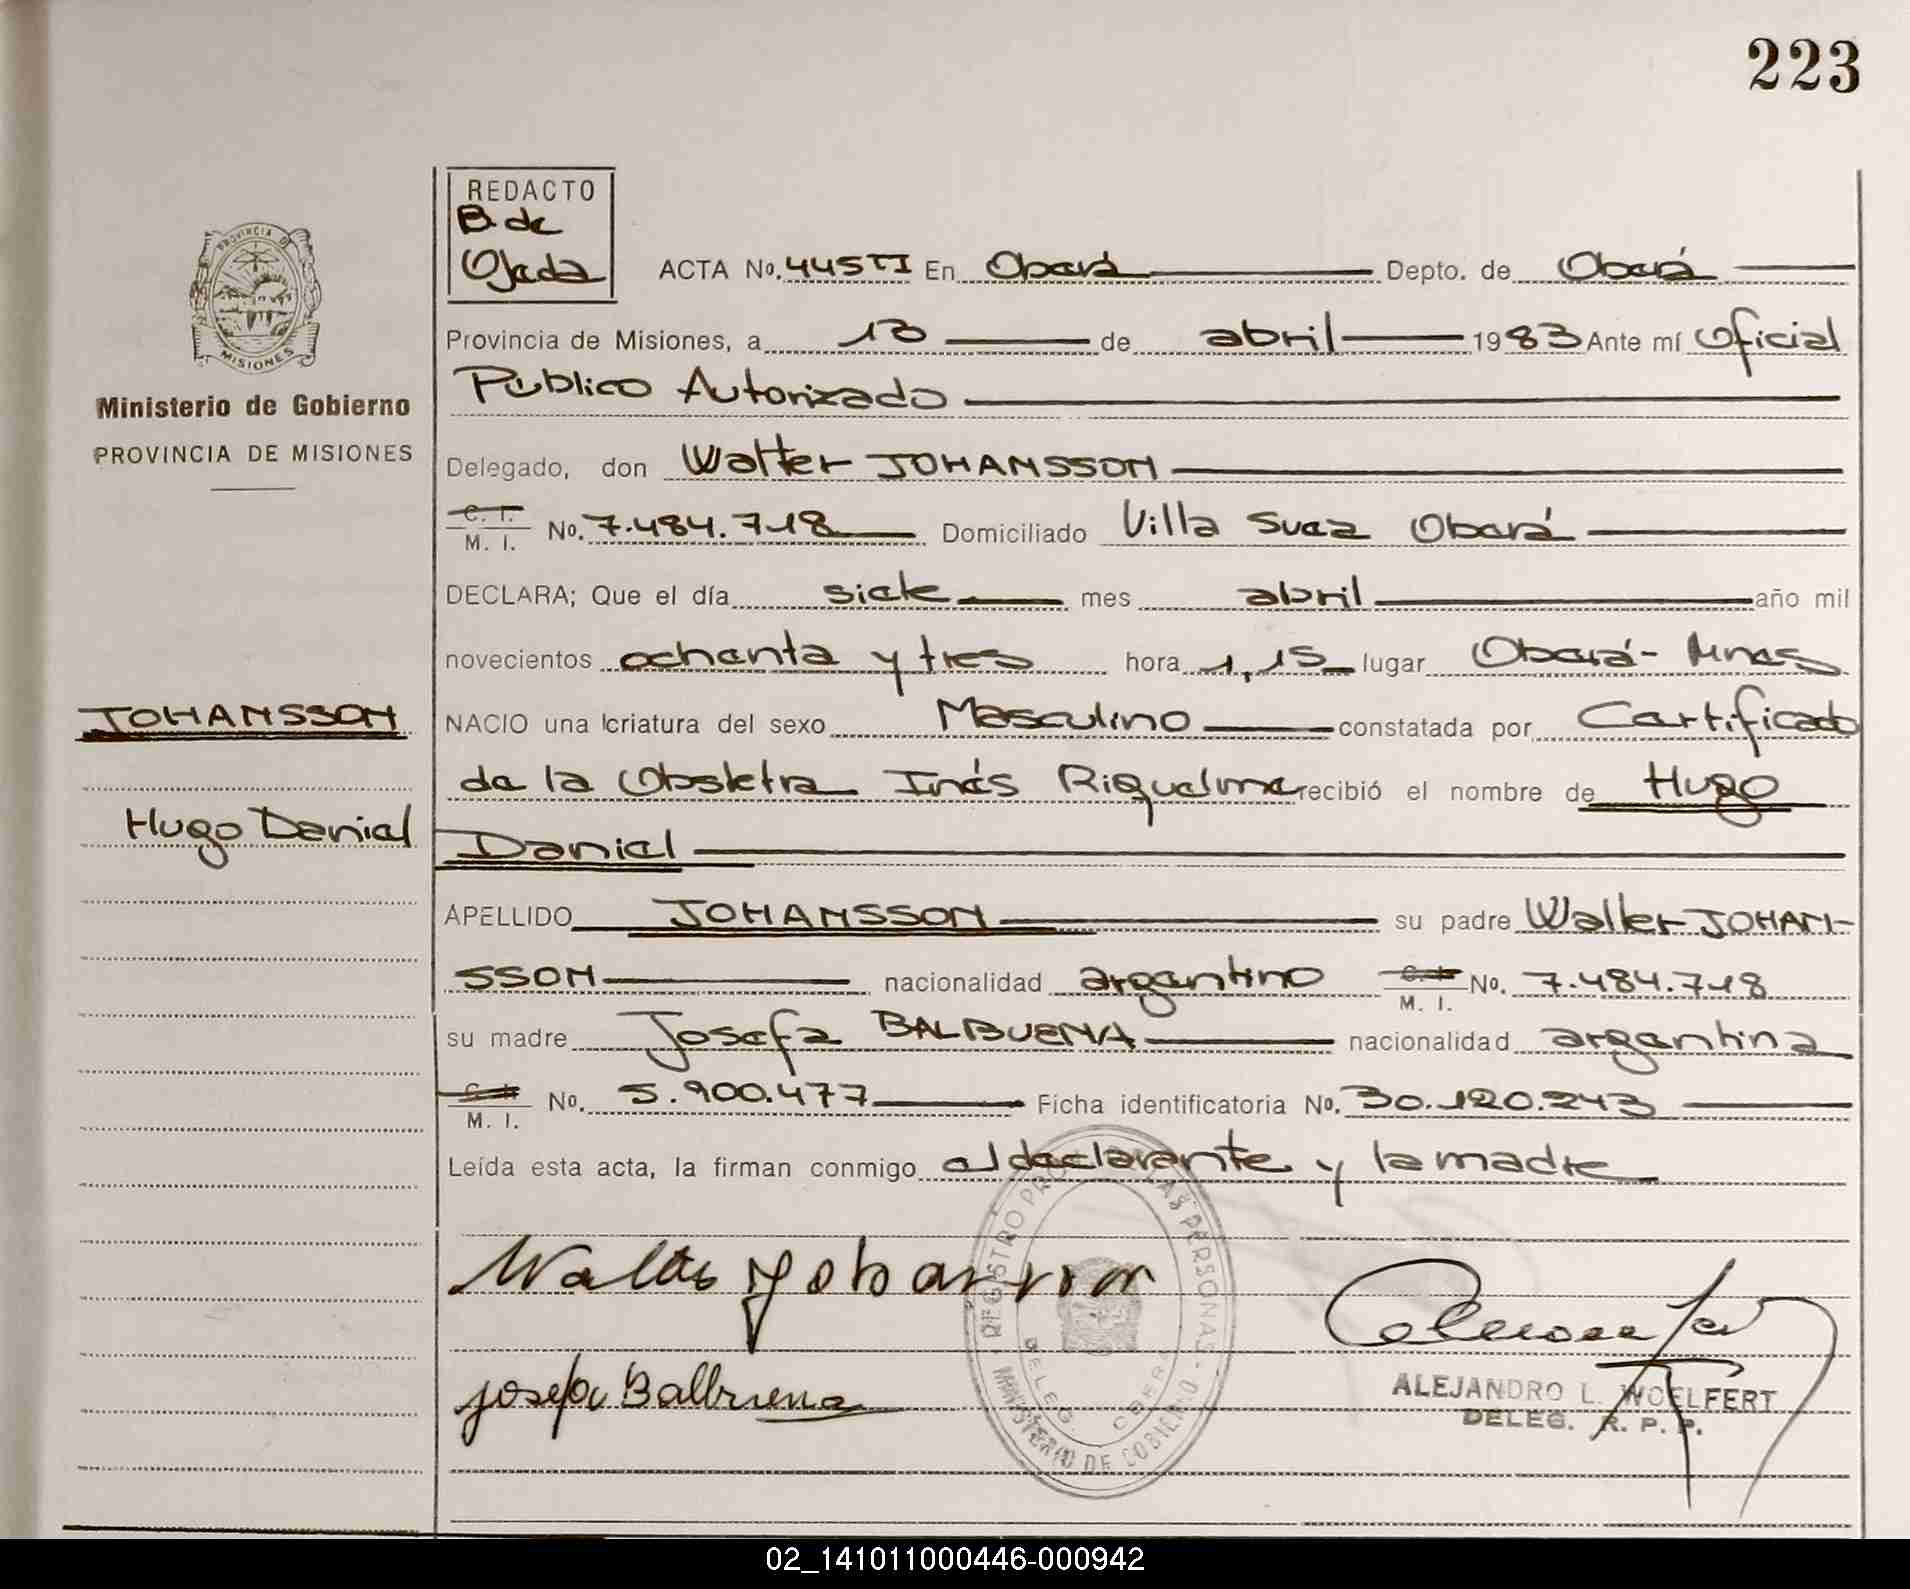 223
REDACTO
B. de
Ojeda
PROVINCIA DE
MISIONES
ACTA No. 445TI En Oberá Depto. de Oberá
Provincia de Misiones, a 13 de abril 1983 Ante mí Oficial
Ministerio de Gobierno
Público Autorizado
PROVINCIA DE MISIONES
Delegado, don Walter JOHANSSON
C. I.
M. I. No. 7.484.718 Domiciliado Villa Svea Oberá
DECLARA; Que el día siete mes abril año mil
novecientos ochenta y tres hora 1,15 lugar Oberá- Mnes
JOHANSSON
NACIO una criatura del sexo Masculino constatada por Certificado
de la Obstetra Inés Riquelme recibió el nombre de Hugo
Hugo Daniel
Daniel
APELLIDO JOHANSSON su padre Walter JOHAN-
SSON nacionalidad argentino C. I. M. I. No. 7.484.718
su madre Josefa BALBUENA nacionalidad argentina
C. I.
M. I. No. 5.900.477 Ficha identificatoria No. 30.120.243
Leída esta acta, la firman conmigo el declarante y la madre
Walter Johansson
REGISTRO PROV. LAS PERSONAS - MINISTERIO DE GOBIERNO
DELEG. OBERA
Josefa Balbuena
ALEJANDRO L. WOELFERT
DELEG. R. P. P.
02_141011000446-000942